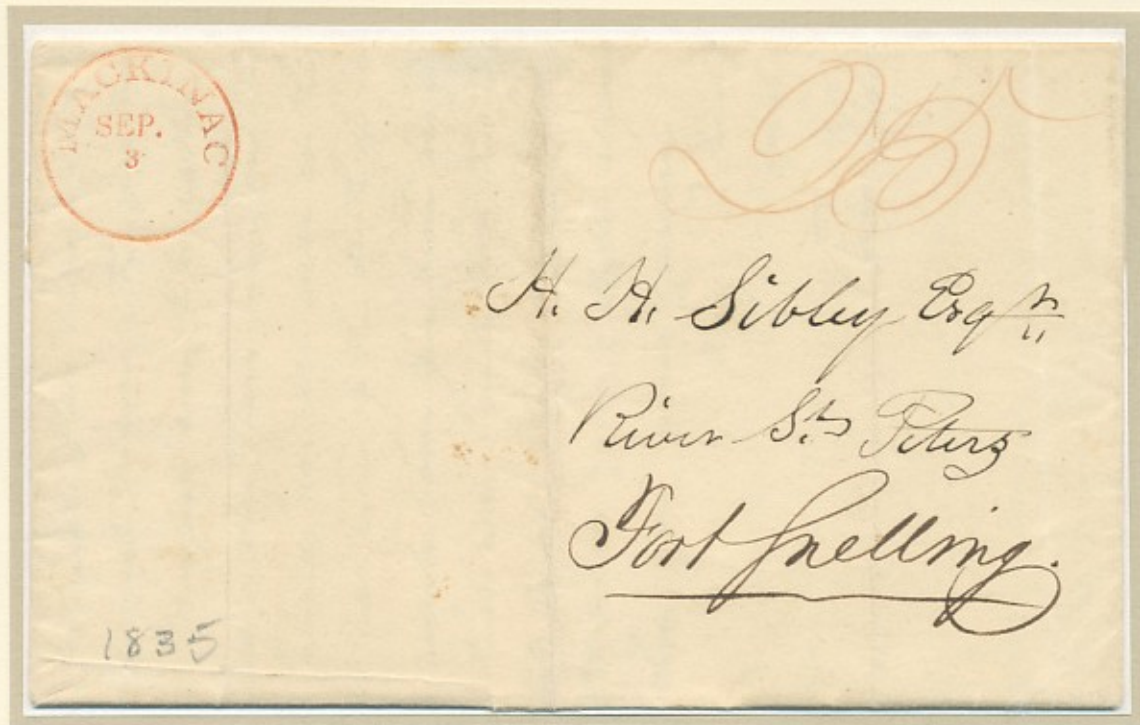 MACKINAC
SEP.
3
25
H. H. Sibley Esqr
River St. Peters
Fort Snelling.
1835